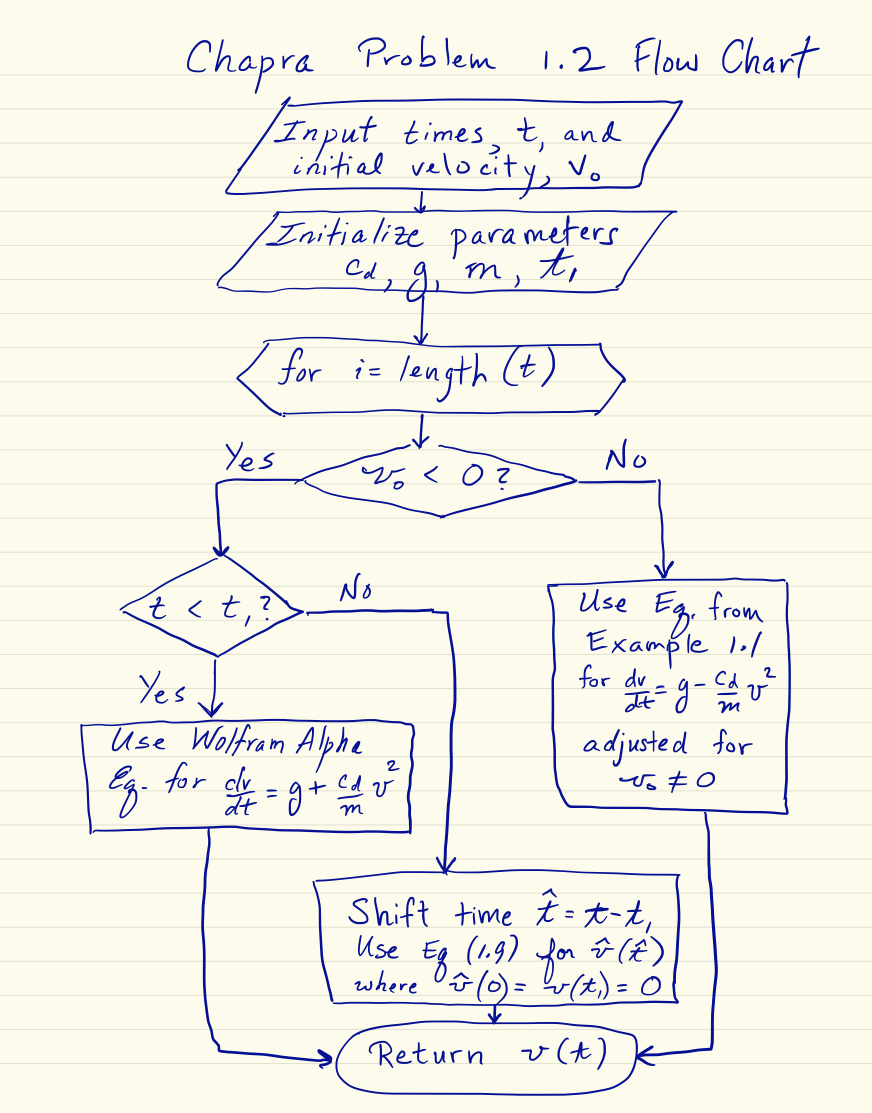 Chapra Problem 1.2 Flow Chart
Input times, t, and
initial velocity, v₀
Initialize parameters
c_d, g, m, t₁
for i = length (t)
v₀ < 0 ?
Yes
No
t < t₁ ?
No
Yes
Use Eq. from
Example 1.1
for dv/dt = g - c_d/m v²
adjusted for
v₀ ≠ 0
Use Wolfram Alpha
Eq. for dv/dt = g + c_d/m v²
Shift time t̂ = t - t₁
Use Eq (1.9) for v̂(t̂)
where v̂(0) = v(t₁) = 0
Return v(t)